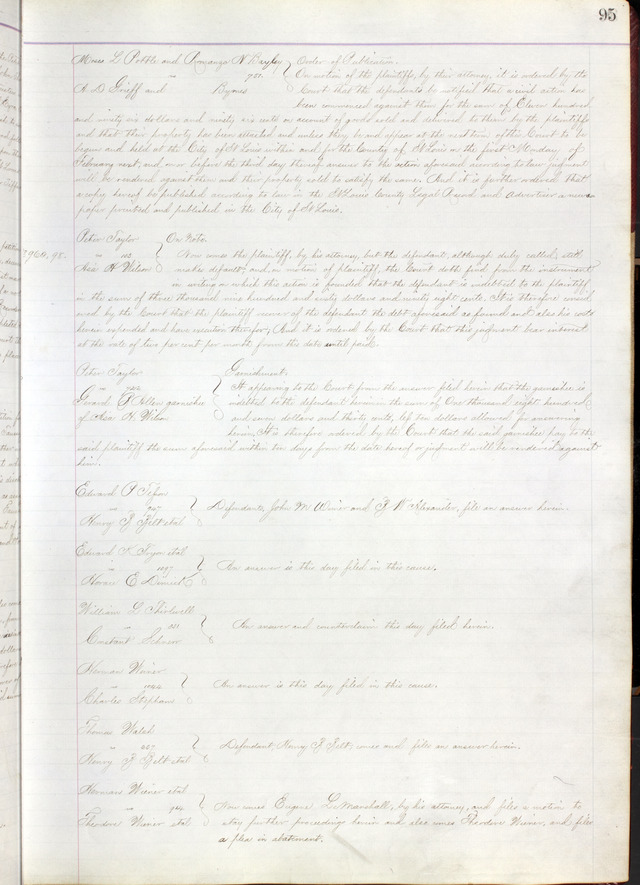 95
Moses L Pottle and Romanzo N Bayley } Order of Publication.
vs 751. On motion of the plaintiffs, by their attorney, it is ordered by the
A D Grieff and Byrnes Court that the defendants be notified that a civil action has
been commenced against them for the sum of Eleven hundred
and ninety six dollars and ninety six cents on account of goods sold and delivered to them by the plaintiffs
and that their property has been attached and unless they be and appear at the next term of this Court to be
begun and held at the City of St Louis within and for the County of St Louis on the first Monday of
February next, and on or before the third day thereof answer to the action aforesaid according to law, judgment
will be rendered against them and their property sold to satisfy the same. And it is further ordered that
a copy hereof be published according to law in the St Louis County Legal Record and Advertiser a news
paper printed and published in the City of St Louis.
Peter Taylor } On Note.
vs Now comes the plaintiff, by his attorney, but the defendant, although duly called, still
Asa H Wilson makes default; and on motion of plaintiff, the Court doth find from the instrument
in writing on which this action is founded that the defendant is indebted to the plaintiff
in the sum of three thousand nine hundred and sixty dollars and ninety eight cents. It is therefore consid
ered by the Court that the plaintiff recover of the defendant the debt aforesaid as found and also his costs
herein expended and have execution therefor, And it is ordered by the Court that this judgment bear interest
at the rate of two per cent per month from this date until paid.
$3960,98.
Peter Taylor } Garnishment.
vs It appearing to the Court from the answer filed herein that the garnishee is
Gerard B Allen garnishee indebted to the defendant herein in the sum of One thousand eight hundred
of Asa H. Wilson and seven dollars and thirty cents, left ten dollars allowed for answering
herein, It is therefore ordered by the Court that the said garnishee pay to the
said plaintiff the sum aforesaid within ten days from the date hereof or judgment will be rendered against
him.
Edward P
vs Defendants, John M. Wimer and B W Alexander, file an answer herein.
Henry J etal
Edward etal
vs An answer is this day filed in this cause.
Horace E Dimick
William L
vs An answer and counterclaim this day filed herein.
Constant
Herman Weiner
vs An answer is this day filed in this cause.
Charles Stephans
Thomas Walsh
vs 667 Defendant, Henry J comes and files an answer herein.
Henry J etal
Herman Weiner etal
vs Now comes Eugene L. Marshall, by his attorney, and files a motion to
Theodore Weiner etal stay further proceedings herein and also comes Theodore Weiner, and files
a plea in abatement.